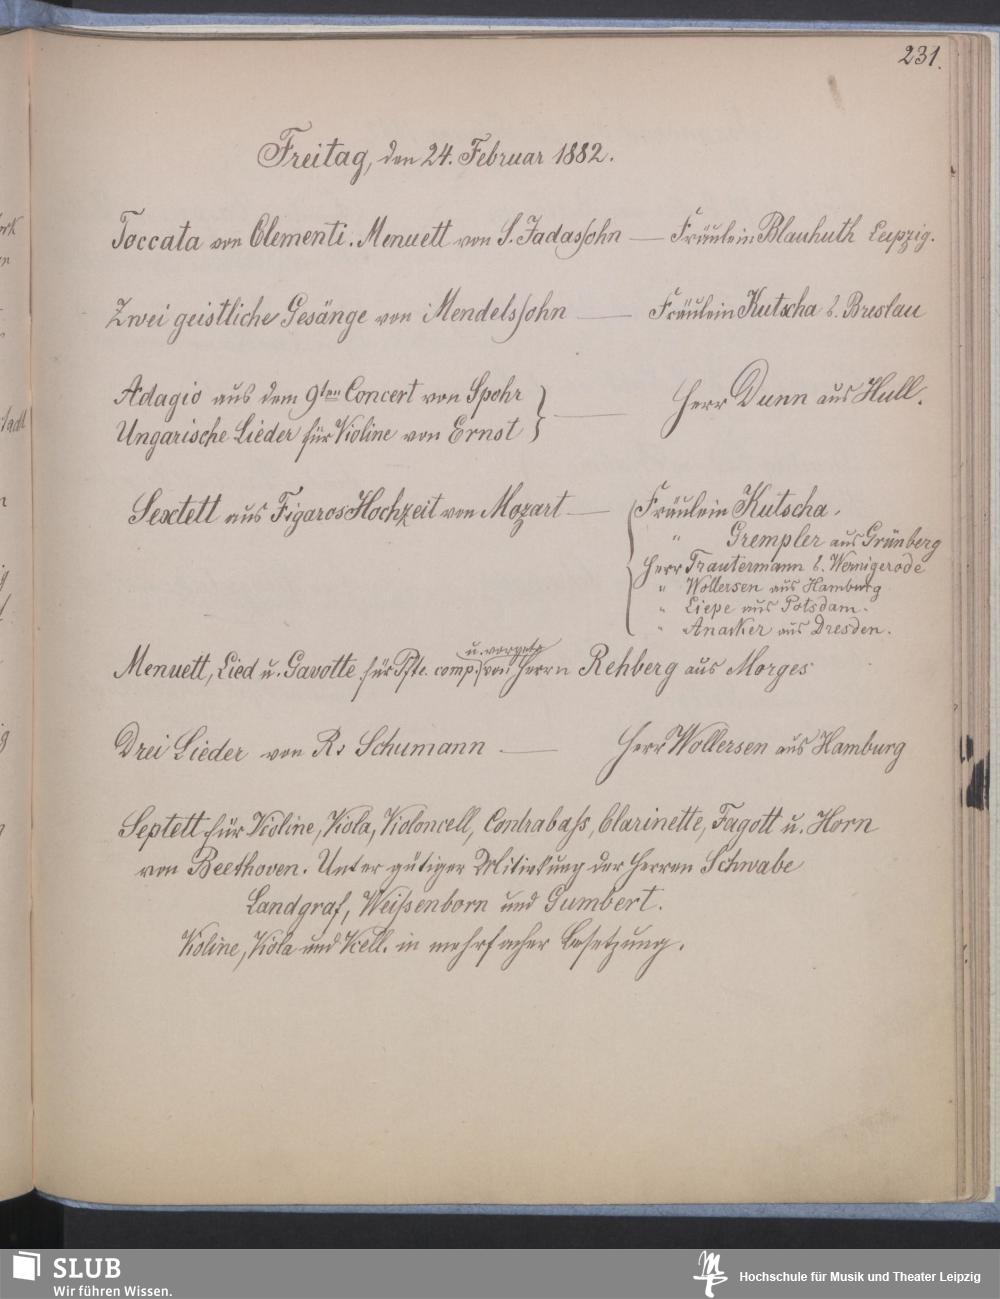 231.
Freitag, den 24. Februar 1882.
Toccata von Clementi. Menuett von S. Jadassohn — Fräulein Blauhuth Leipzig.
Zwei geistliche Gesänge von Mendelssohn — Fräulein Kutscha a. Breslau
Adagio aus dem 9ten Concert von Spohr
Ungarische Lieder für Violine von Ernst } — Herr Dunn aus Hull.
Sextett aus Figaros Hochzeit von Mozart — { Fräulein Kutscha,
" Grempler aus Grünberg
Herr Trautermann a. Wernigerode
" Wollersen aus Hamburg
" Liepe aus Potsdam.
" Anacker aus Dresden.
u. vorgetr.
Menuett, Lied u. Gavotte für Pfte. comp. von Herrn Rehberg aus Morges
Drei Lieder von R. Schumann — Herr Wollersen aus Hamburg
Septett für Violine, Viola, Violoncell, Contrabass, Clarinette, Fagott u. Horn
von Beethoven. Unter gütiger Mitwirkung der Herren Schwabe
Landgraf, Weißenborn und Gumbert.
Violine, Viola und Vcell. in mehrfacher Besetzung.
SLUB
Wir führen Wissen.
Hochschule für Musik und Theater Leipzig